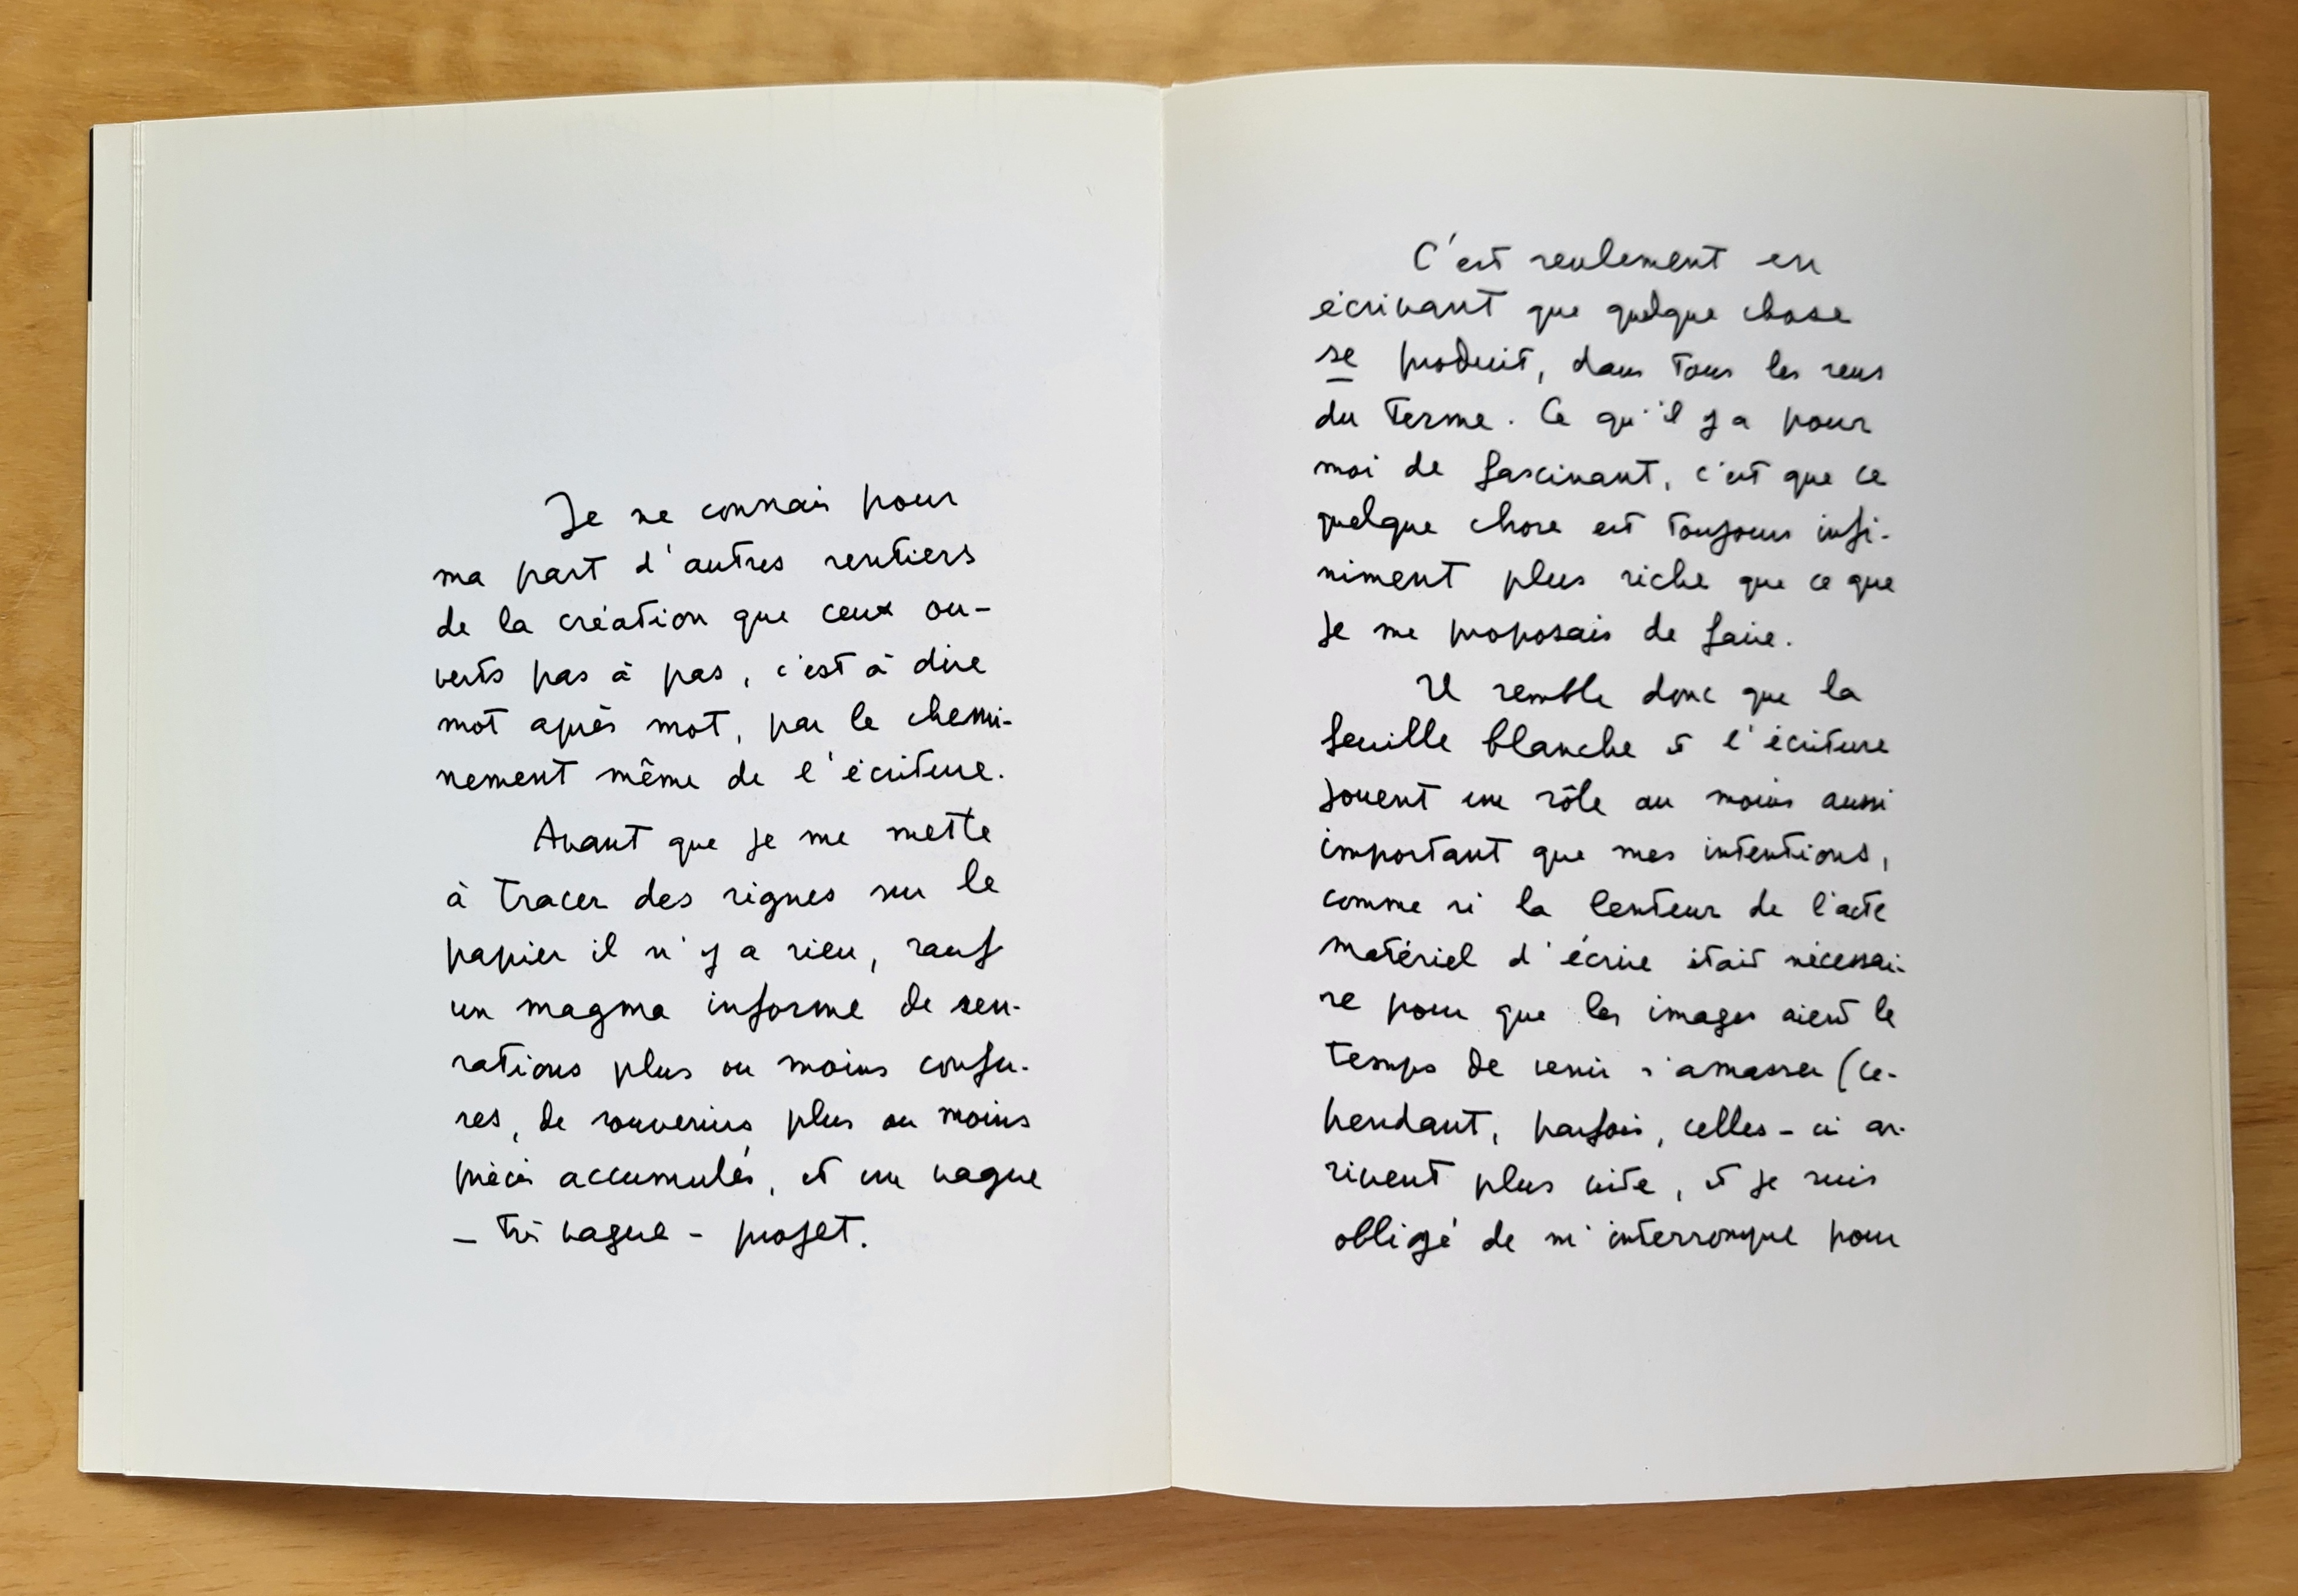 Je ne connais pour
ma part d'autres sentiers
de la création que ceux ou-
verts pas à pas, c'est à dire
mot après mot, par le chemi-
nement même de l'écriture.
Avant que je me mette
à tracer des signes sur le
papier il n'y a rien, sauf
un magma informe de sen-
sations plus ou moins confu-
ses, de souvenirs plus ou moins
précis accumulés, et un vague
– très vague – projet.
C'est seulement en
écrivant que quelque chose
se produit, dans tous les sens
du terme. Ce qu'il y a pour
moi de fascinant, c'est que ce
quelque chose est toujours infi-
niment plus riche que ce que
je me proposais de faire.
Il semble donc que la
feuille blanche et l'écriture
jouent un rôle au moins aussi
important que mes intentions,
comme si la lenteur de l'acte
matériel d'écrire était nécessai-
re pour que les images aient le
temps de venir s'amasser (ce-
pendant, parfois, celles-ci ar-
rivent plus vite, et je suis
obligé de m'interrompre pour